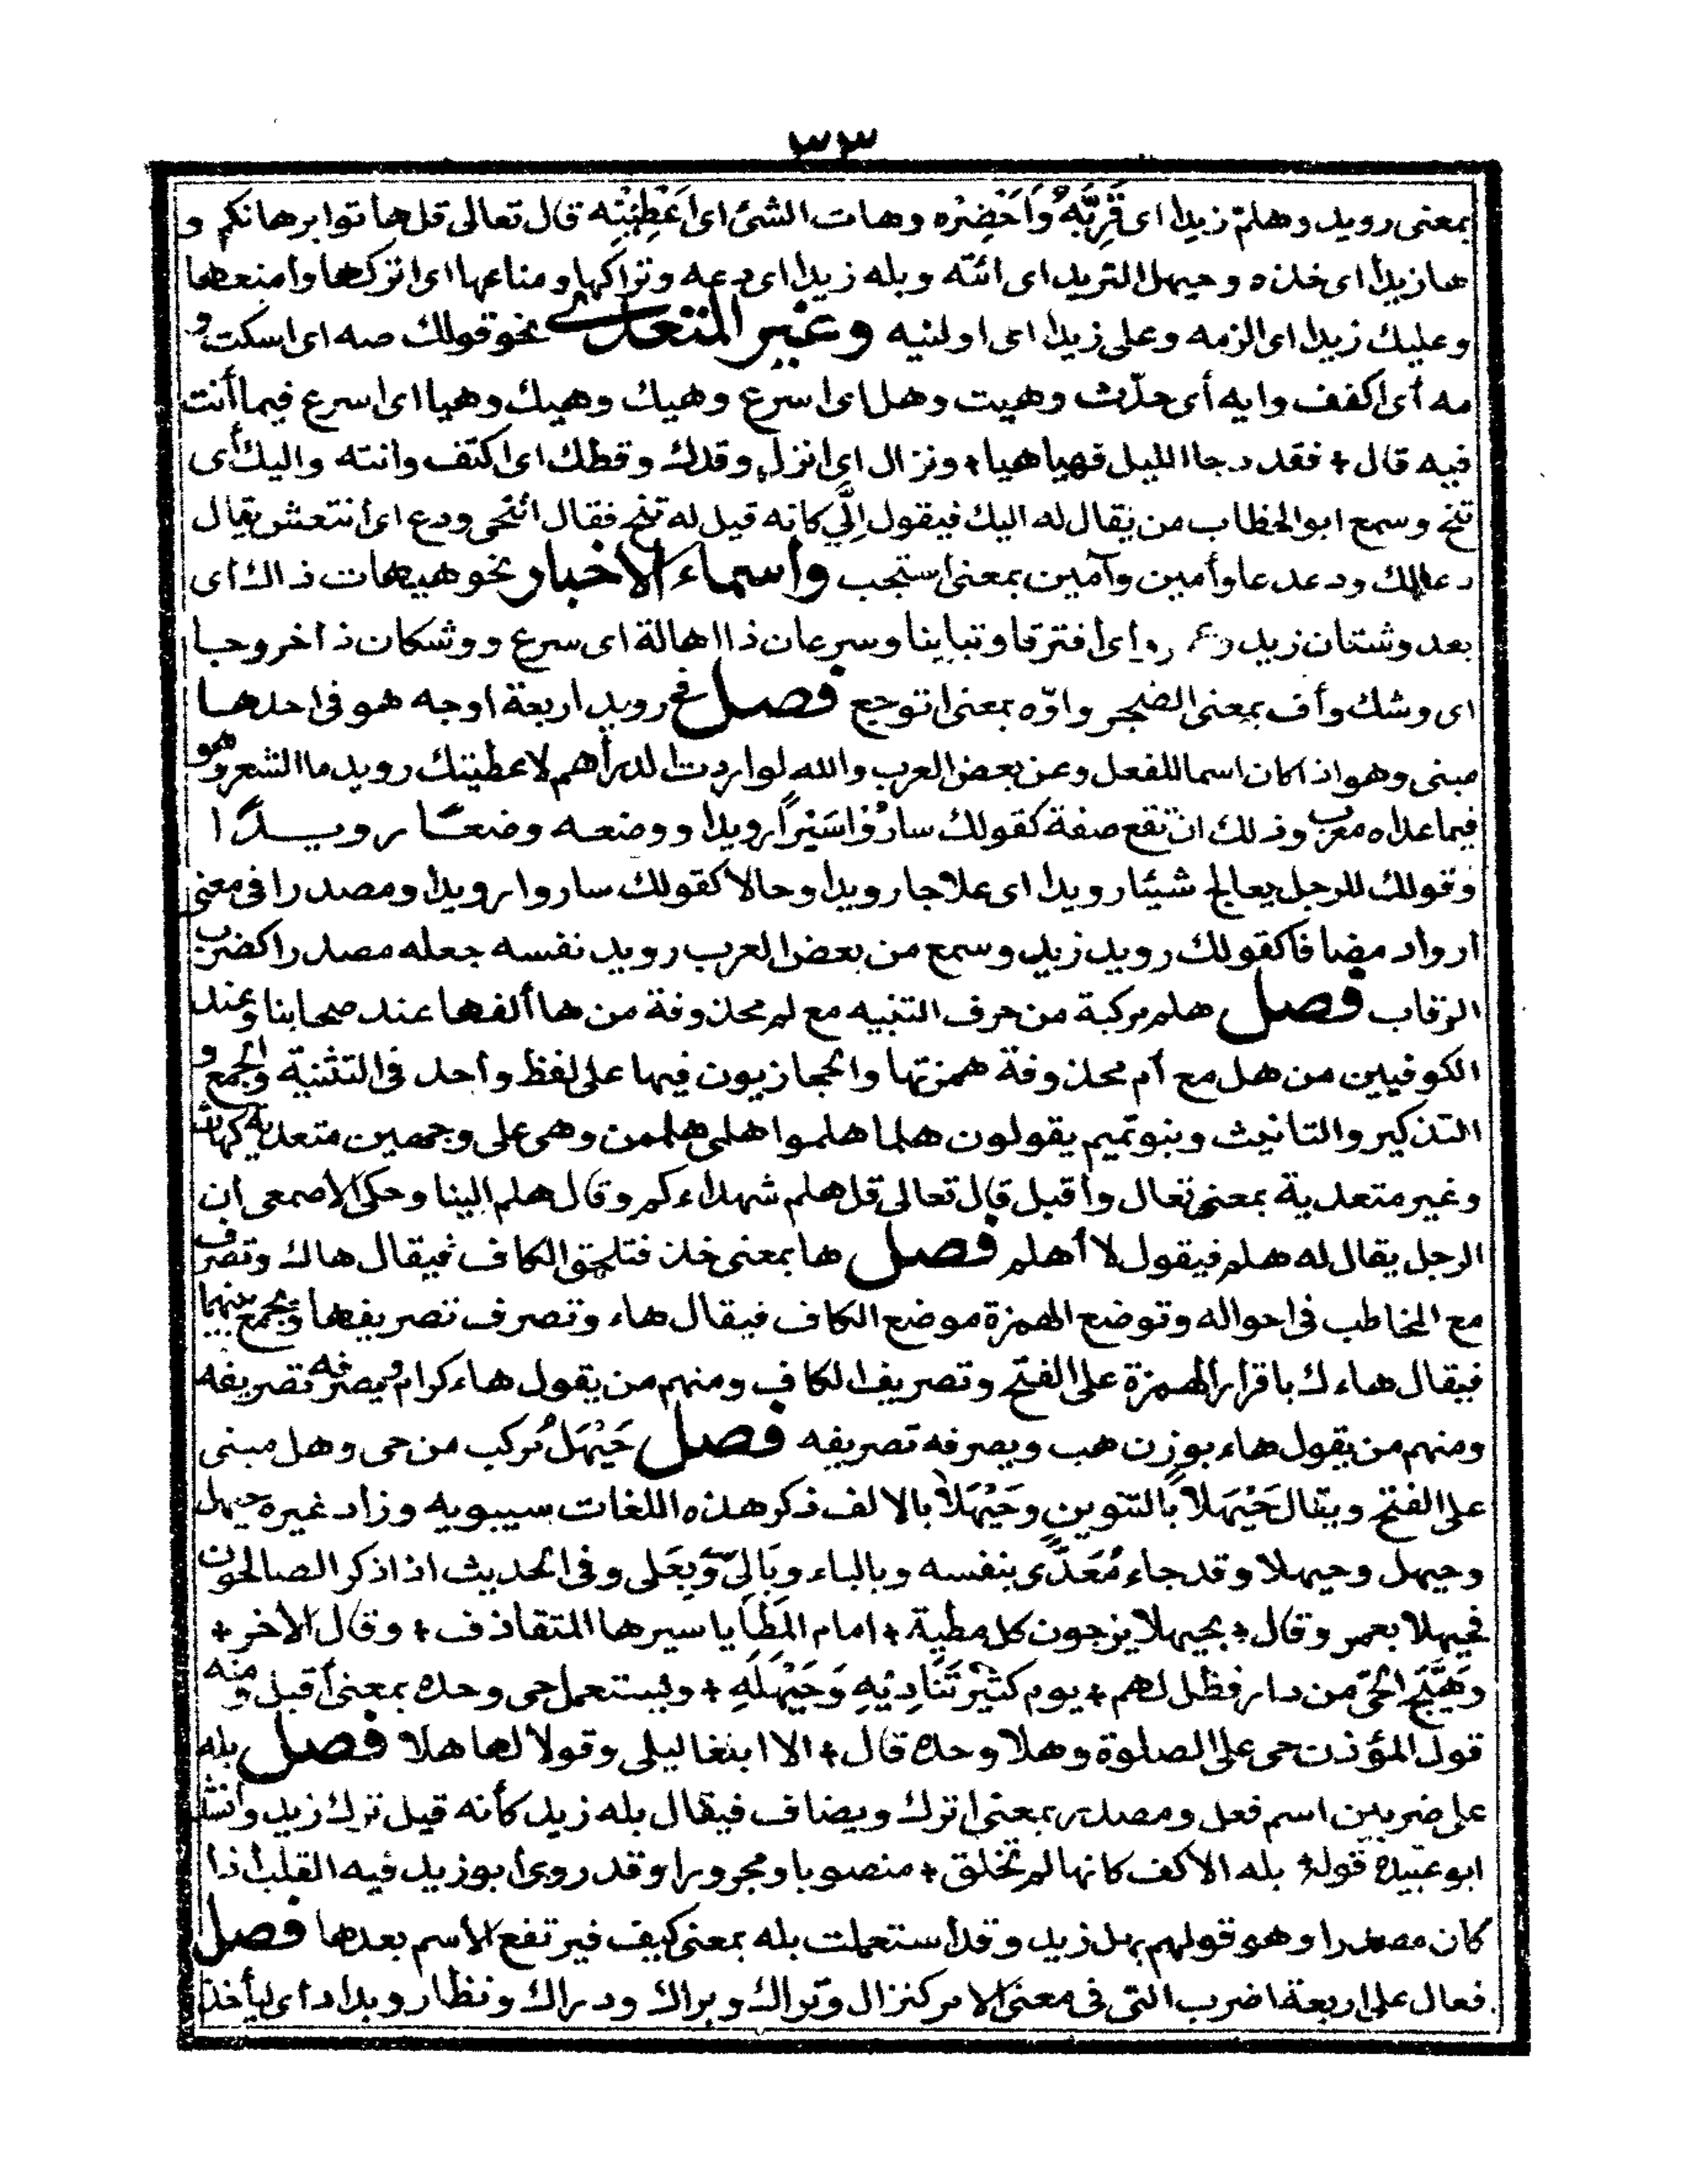 ٣٣
بمعنى رويد وهلمّ زيدا اى قَرِّبْهُ وَأَحْضِرْه وهات الشئ اى أَعْطِنِيْه قال تعالى قل هاتوا برهانكم و
هازيدا اى خذه وحيهل الثريد اى ائته وبله زيدا اى دعه وتراكها ومناعها اى اتركها وامنعها
وعليك زيدا اى الزمه وعلى زيدا اى اولنيه وغير المتعدى نحو قولك صه اى اسكت و
مه أى اكفف وايه أى حدّث وهيت وهل اى اسرع وهيك وهيك وهيا اى اسرع فيما أنت
فيه قال ٭ فقد دجا الليل فهيا هيا ٭ ونزال اى انزل وقدك وقطك اى اكتف وانته واليك أى
تنح وسمع ابو الخطاب من يقال له اليك فيقول إلَّي كانه قيل له تنح فقال اتنحى ودع اى أنتعش يقال
دعالك ودعدعا وأمين وآمين بمعنى استجب وأسماء الاخبار نحو هيهات ذاك اى
بعد وشتان زيد وعمرو اى افترقا وتباينا وسرعان ذا اهالة اى سرع ووشكان ذا خروجا
اى وشك وأف بمعنى اتضجر واوّه بمعنى اتوجع فصل فى رويد اربعة اوجه هو فى احدها
مبنى وهو اذا كان اسما للفعل وعن بعض العرب والله لو اردت الدراهم لاعطيتك رويد ما الشعر وهو
فيما عداه معرب وذلك ان تقع صفة كقولك سارُوْا سَيْراً رويدا ووضعه وضعًا رويدًا
وقولك للرجل يعالج شيئا رويدا اى علاجا رويدا وحالا كقولك ساروا رويدا ومصدرا فى معنى
ارواد مضافا كقولك رويد زيد وسمع من بعض العرب رويد نفسه جعله مصدرا كضرب
الرقاب فصل هلم مركبة من حرف التنبيه مع لم محذوفة من ها ألفها عند صحابنا وعند
الكوفيين من هل مع أم محذوفة همزتها والحجازيون فيها على لفظ واحد فى التثنية والجمع و
التذكير والتانيث وبنو تميم يقولون هلما هلموا هلمى هلممن وهى على وجهين متعدية كهات
وغير متعدية بمعنى تعال واقبل قال تعالى قل هلم شهداءكم وقال هلم الينا وحكى الاصمعى ان
الرجل يقال له هلم فيقول لا أهلم فصل ها بمعنى خذ فتلحق الكاف فيقال هاك وتصرف
مع المخاطب فى احواله وتوضع الهمزة موضع الكاف فيقال هاء وتصرف تصريفها وتجمع بينهما
فيقال هاءك باقرار الهمزة على الفتح وتصريف الكاف ومنهم من يقول هاء كرام ويصرفه تصريفه
ومنهم من يقول هاء بوزن هب ويصرفه تصريفه فصل حَيْهَل مُركب من حى وهل مبنى
على الفتح ويقال حَيْهَلاً بالتنوين وحَيْهَلَا بالالف ذكر هذه اللغات سيبويه وزاد غيره حيهل
وحيهل وحيهلا وقد جاء مُعَدًّى بنفسه وبالباء وبِالىّ وبعَلى وفى الحديث اذا ذكر الصالحون
فحيهلا بعمر وقال ٭ بحيهلا يزجون كل مطية ٭ امام المَطَايا سيرها المتقاذف ٭ وقال الآخر ٭
وَهَيَّجَ الحَىّ من دار فظل لهم ٭ يوم كثير تَنَادِيْهِ وَحَيْهَلَهِ ٭ ويستعمل حى وحده بمعنى أقبل ومنه
قول المؤذن حى على الصلوة وهلا وحده قال ٭ الا ابلغا ليلى وقولا لها هلا فصل بله
على ضربين اسم فعل ومصدر بمعنى اترك ويضاف فيقال بله زيد كأنه قيل ترك زيد وأنشد
ابو عبيدة قوله ٭ بله الاكف كانها لم تخلق ٭ منصوبا ومجرورا وقد روى ابو زيد فيه القلب اذا
كان مصدرا وهو قولهم بهل زيد وقد استعملت بله بمعنى كيف فيرتفع الاسم بعدها فصل
فعال على اربعة اضرب التى فى معنى الامر كنزال وتراك وبراك ودراك ونظار وبداد اى ليأخذ